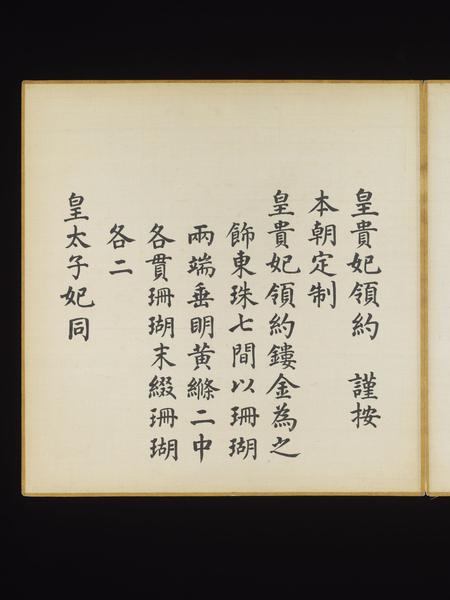 皇貴妃領約　謹按
本朝定制
皇貴妃領約鏤金為之
飾東珠七間以珊瑚
兩端垂明黃絛二中
各貫珊瑚末綴珊瑚
各二
皇太子妃同